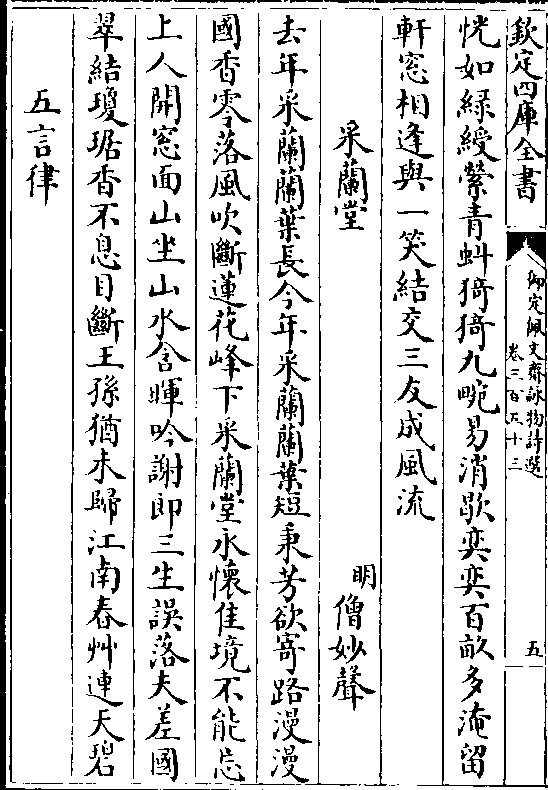 欽定四庫全書
御定佩文齋詠物詩選
卷三百五十三
五
恍如緑綬縈青蚪猗猗九畹易消歇奕奕百畝多淹留
軒窓相逢與一笑結交三友成風流
采蘭堂
明
僧妙聲
去年采蘭蘭葉長今年采蘭蘭葉短秉芳欲寄路漫漫
國香零落風吹斷蓮花峰下采蘭堂永懷佳境不能忘
上人開窓面山坐山水含暉吟謝郎三生誤落夫差國
翠結瓊琚香不息目斷王孫猶未歸江南春艸連天碧
五言律